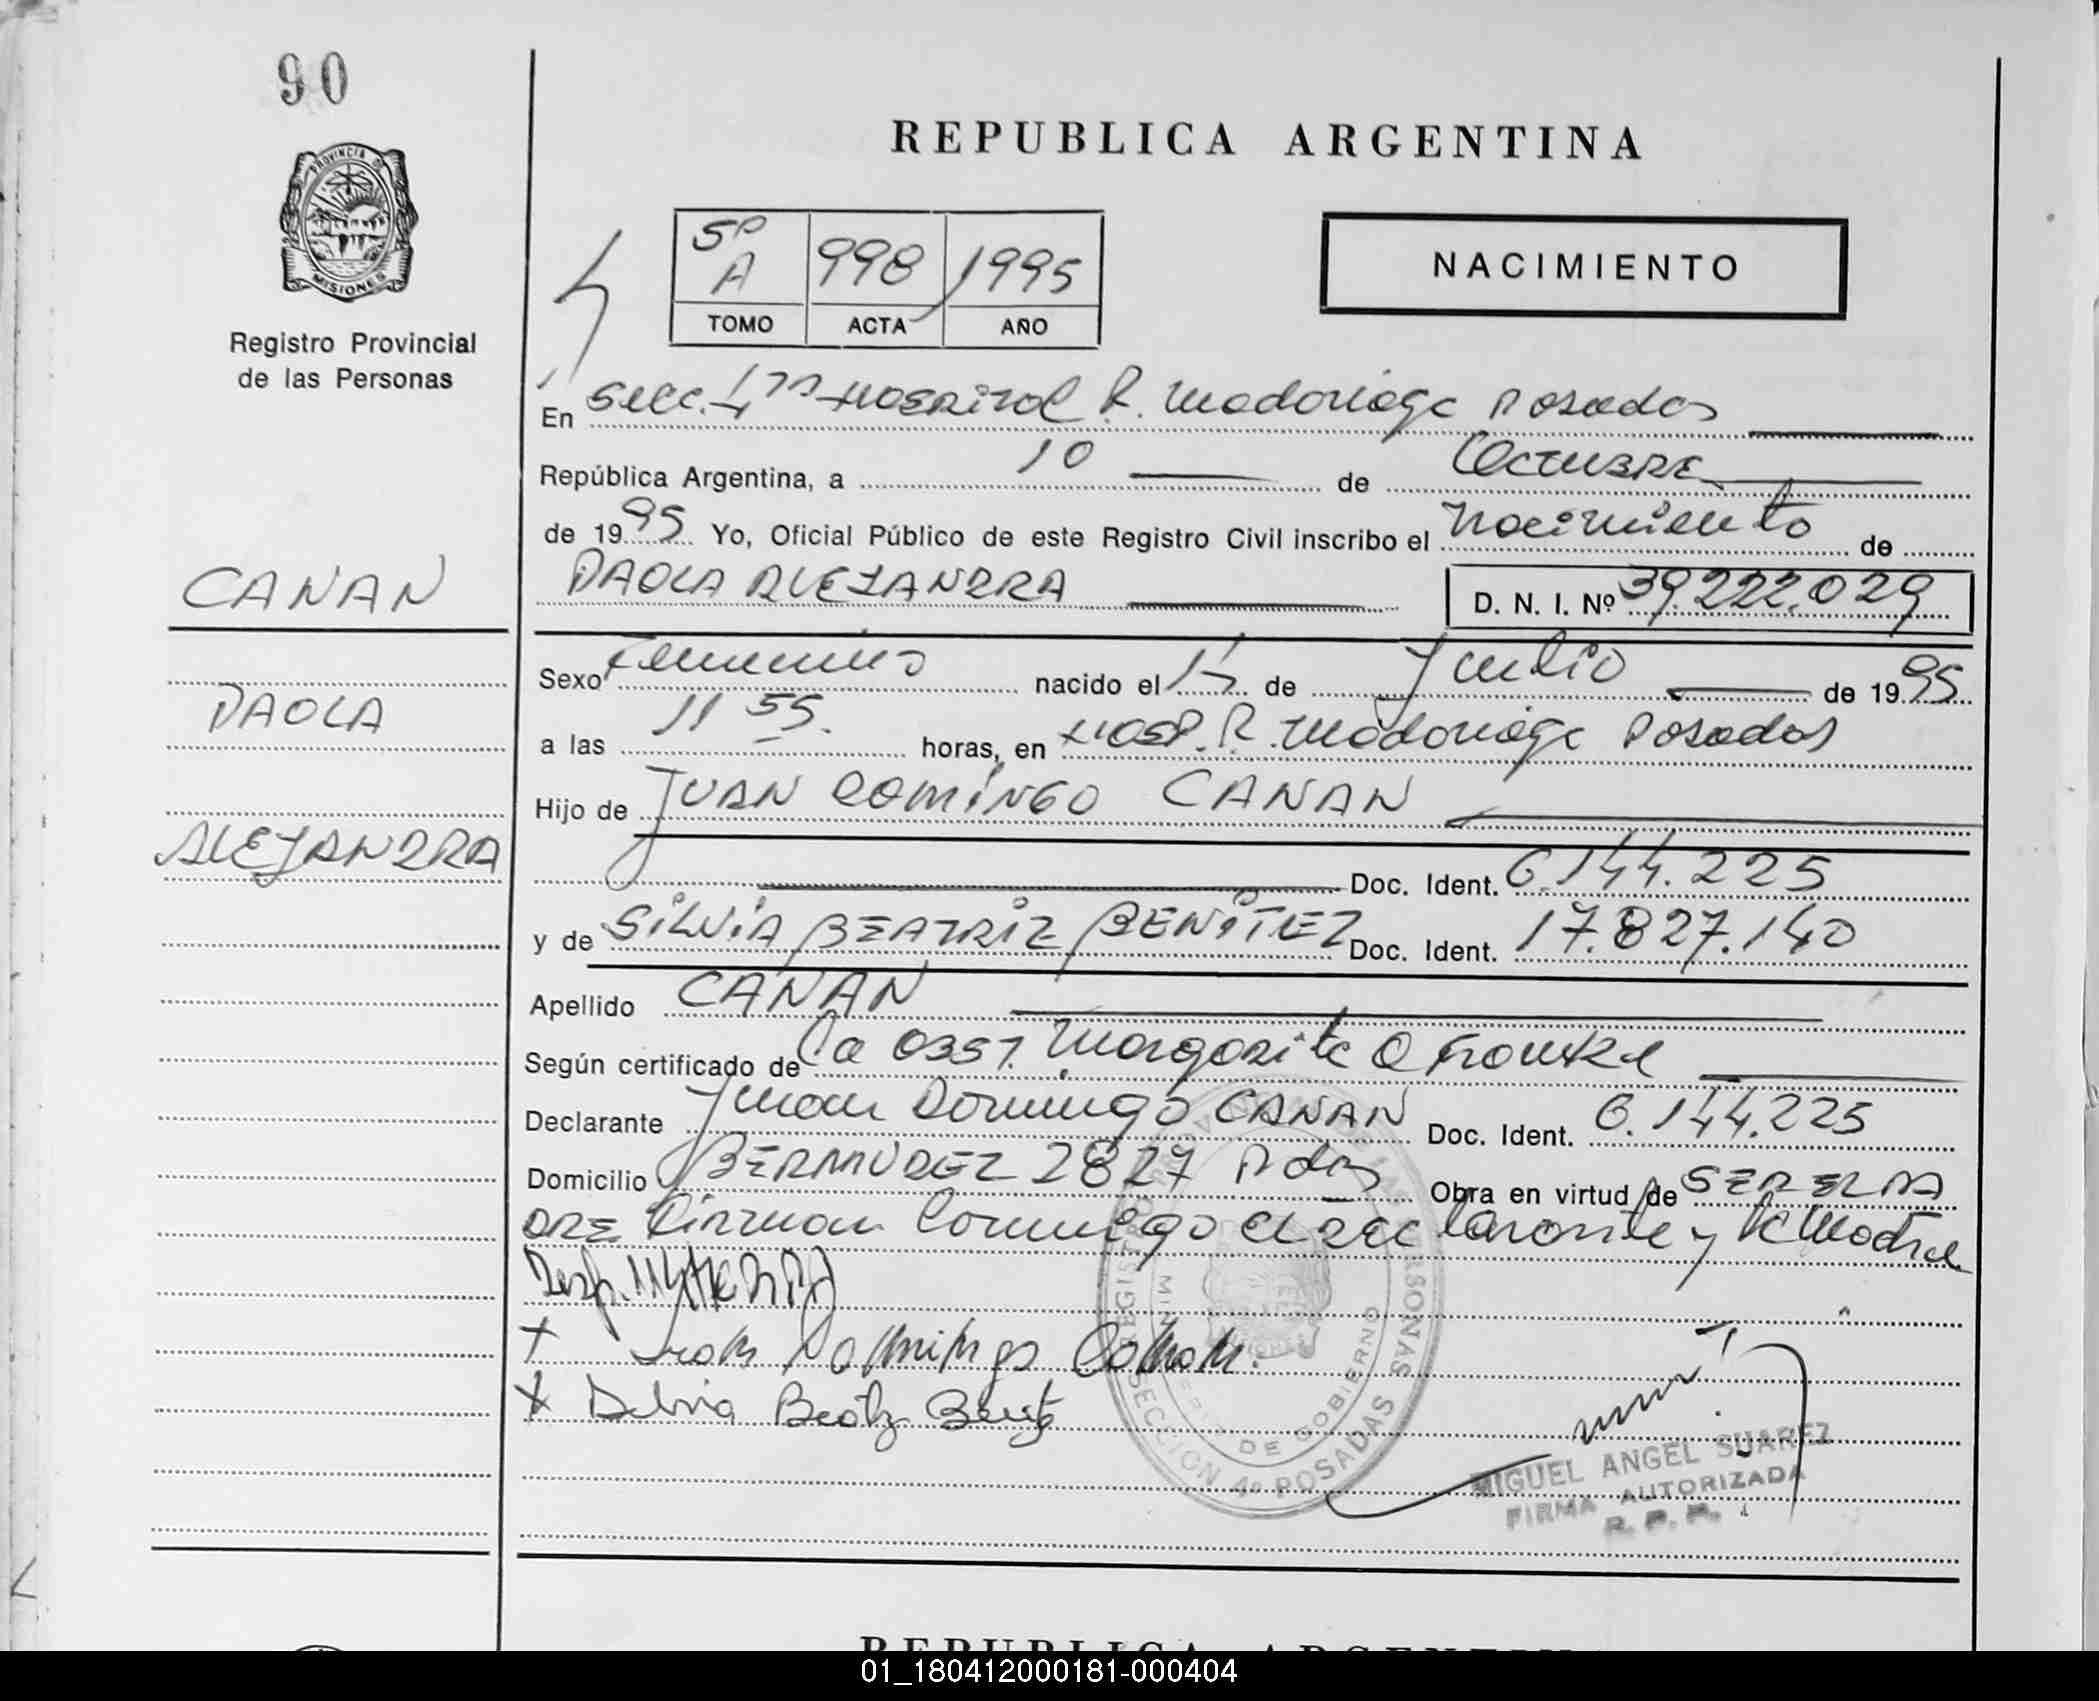 90
REPUBLICA ARGENTINA
PROVINCIA DE
MISIONES
Registro Provincial
de las Personas
5º A 998 1995
TOMO ACTA AÑO
NACIMIENTO
En Secc. 4ta Hospital R. Madariaga Posadas
República Argentina, a 10 de Octubre
de 1995 Yo, Oficial Público de este Registro Civil inscribo el nacimiento de
PAOLA ALEJANDRA D. N. I. Nº 39.222.029
CANAN
PAOLA
ALEJANDRA
Sexo Femenino nacido el de Julio de 1995
a las 11 55. horas, en Hosp. R. Madariaga Posadas
Hijo de JUAN DOMINGO CANAN
Doc. Ident. 6.144.225
y de SILVIA BEATRIZ BENITEZ Doc. Ident. 17.827.140
Apellido CANAN
Según certificado de la Obst. Margarita
Declarante Juan Domingo CANAN Doc. Ident. 6.144.225
Domicilio BERMUDEZ 2827 Pdas Obra en virtud de SER EL PA
DRE Firman Conmigo el declarante y la Madre
Juan Domingo Canan.
Silvia Beatriz Benitez
REGISTRO PROVINCIAL DE LAS PERSONAS
MINISTERIO DE GOBIERNO
SECCION 4º POSADAS
MIGUEL ANGEL SUAREZ
FIRMA AUTORIZADA
R. P. P.
REPUBLICA ARGENTINA
01_180412000181-000404